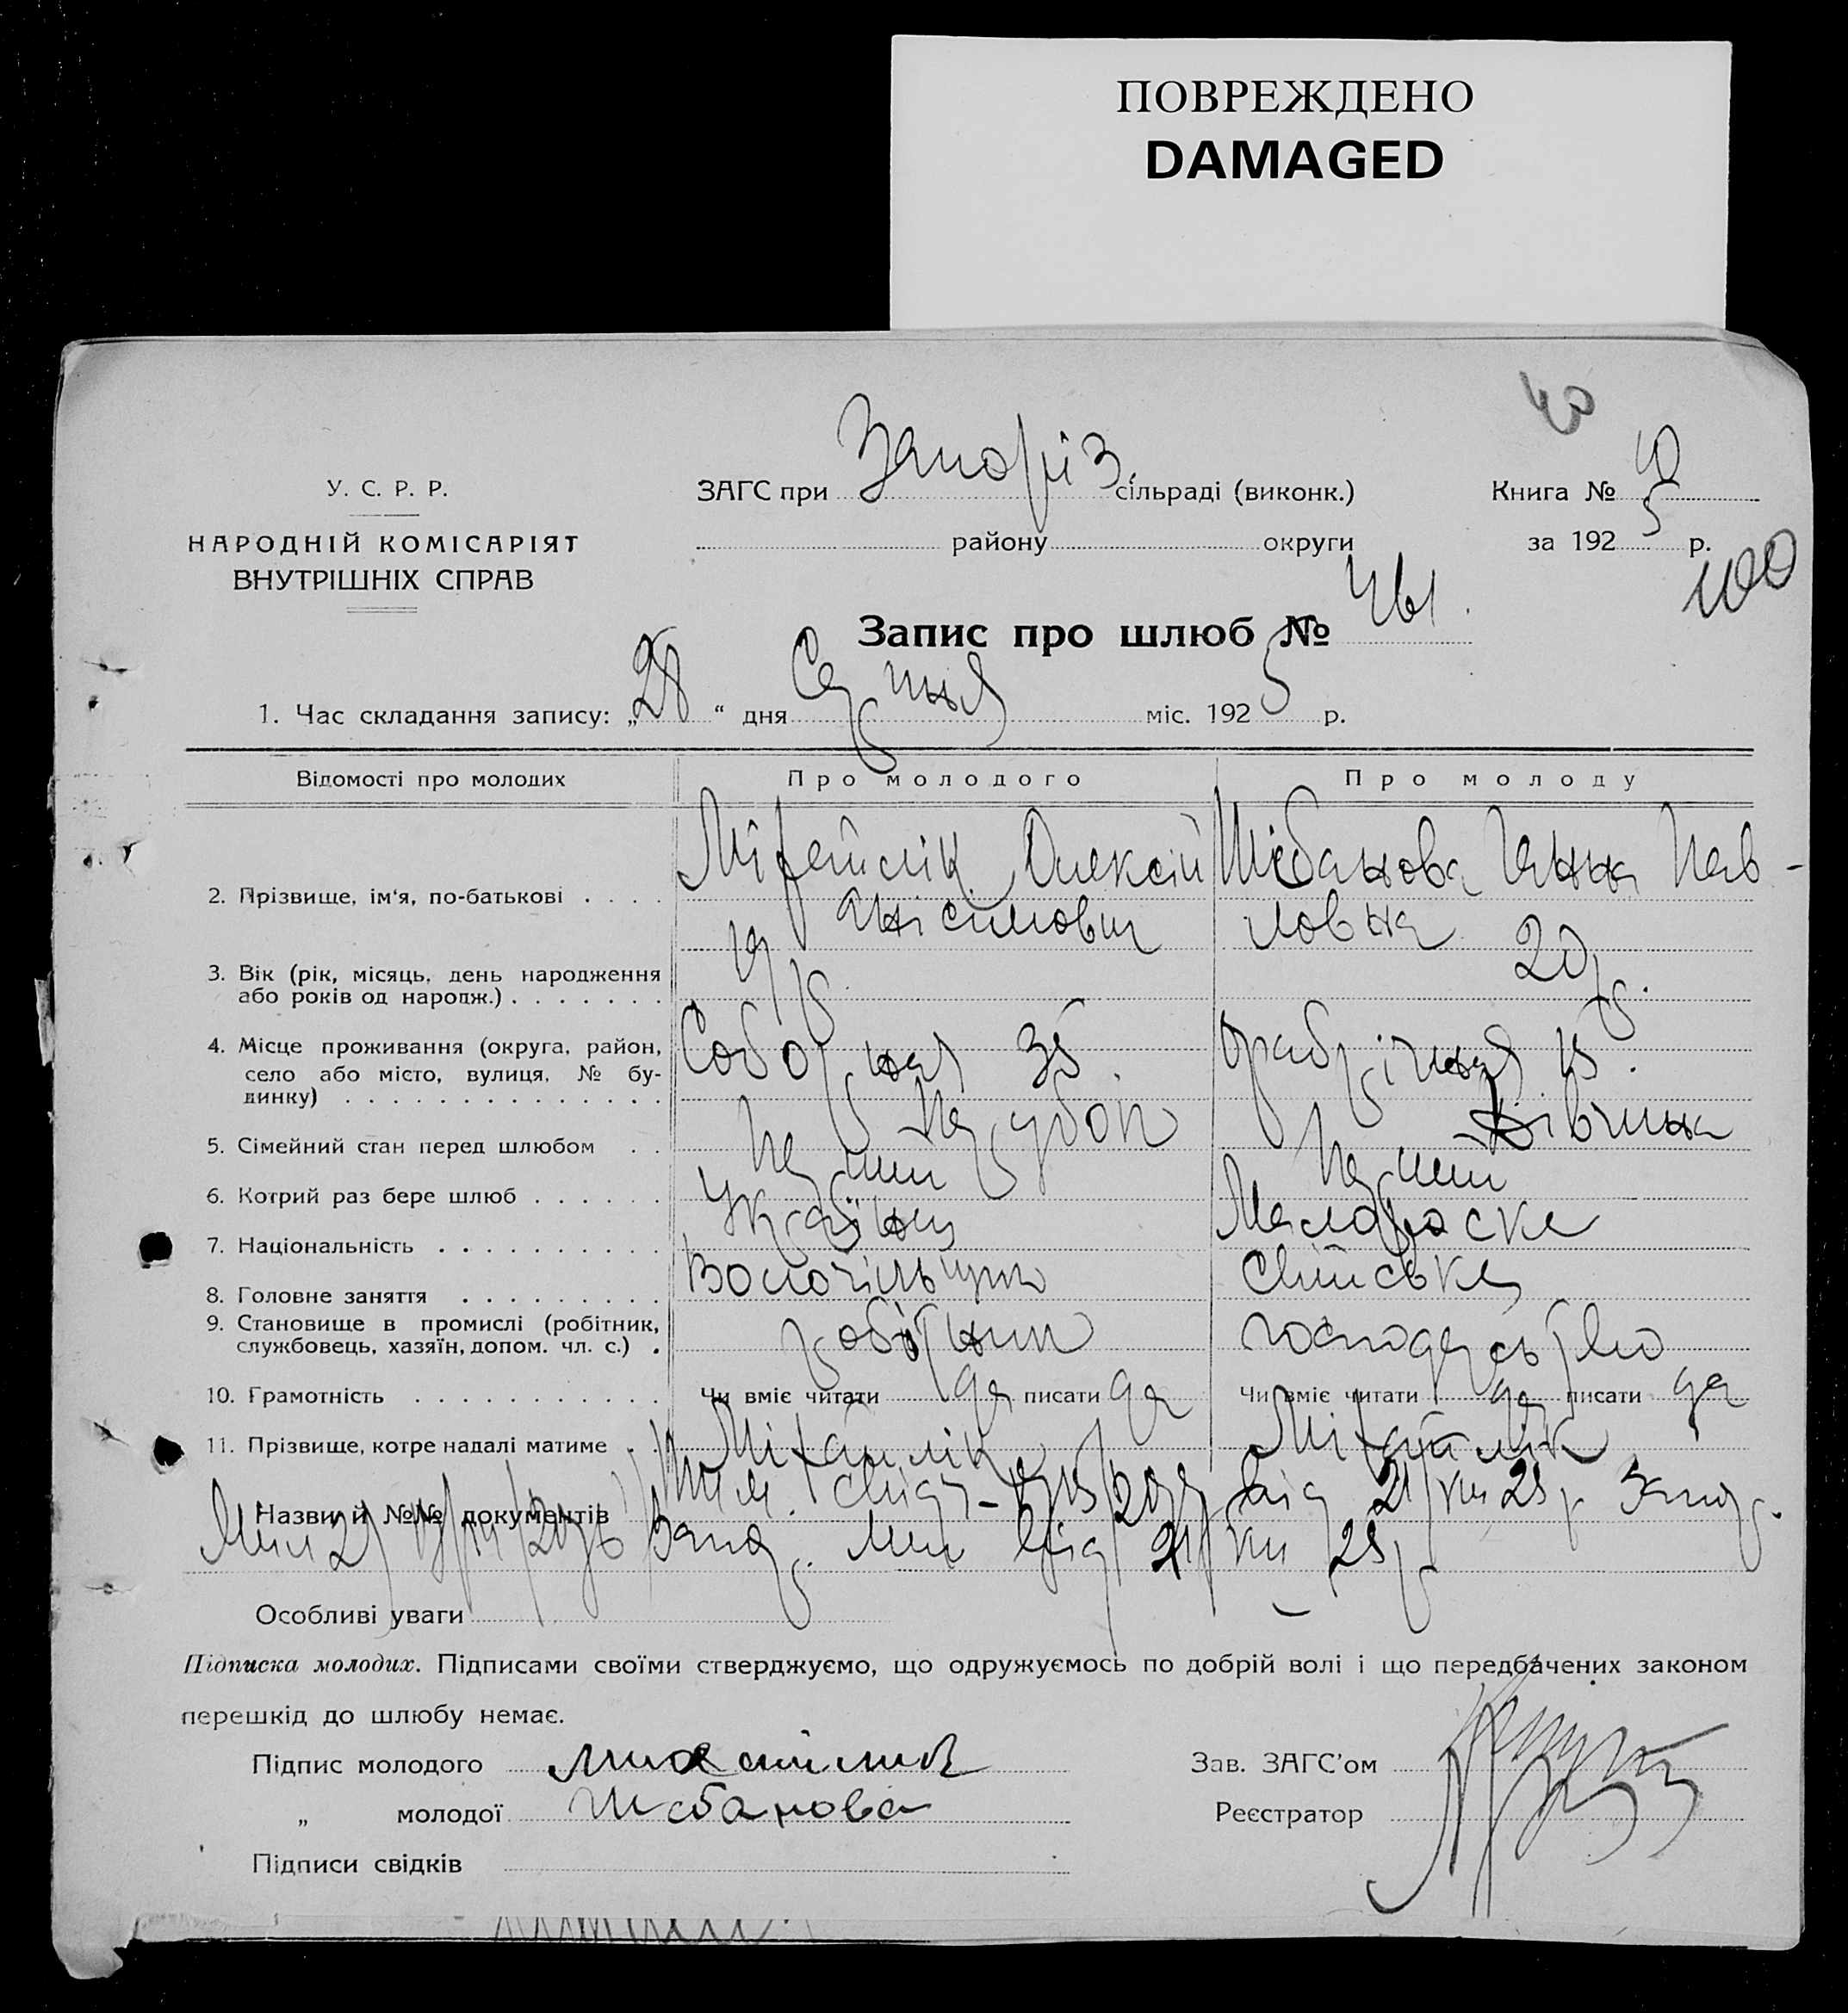 ПОВРЕЖДЕНО
DAMAGED
40
У. С. Р. Р.
НАРОДНІЙ КОМІСАРІЯТ
ВНУТРІШНІХ СПРАВ
ЗАГС при Запоріз. сільраді (виконк.)
району округи
Книга № 10
за 1925 р.
100
Запис про шлюб № 461
1. Час складання запису: „28“ дня Серпня міс. 1925 р.
Відомості про молодих Про молодого Про молоду
2. Прізвище, ім‘я, по-батькові . . . . Міхайлік Олексій Шебанова Ганна Пав-
Анісимович ловна
3. Вік (рік, місяць, день народження
або років од народж.) . . . . . . . 19 р. 20 р.
4. Місце проживання (округа, район,
село або місто, вулиця, № бу-
динку) . . . . . . . . . . . . . . Соборная 35. Фабрічная 15.
5. Сімейний стан перед шлюбом . . Парубок Дівчина
6. Котрий раз бере шлюб . . . . . . Перший Перший
7. Національність . . . . . . . . . . Українец Малороска
8. Головне заняття . . . . . . . . . Сільське
9. Становище в промислі (робітник,
службовець, хазяїн, допом. чл. с.) . робітник господарство
10. Грамотність . . . . . . . . . . . Чи вміє читати да писати да Чи вміє читати да писати да
11. Прізвище, котре надалі матиме . . Міхайлік Міхайлік
Назви й №№ документів
від 21/VIII 25 р. Запор.
Запор. від 21/VIII 25 р.
Особливі уваги
Підписка молодих. Підписами своїми стверджуємо, що одружуємось по добрій волі і що передбачених законом
перешкід до шлюбу немає.
Підпис молодого Михайлик
„ молодої Шебанова
Підписи свідків
Зав. ЗАГС’ом
Реєстратор